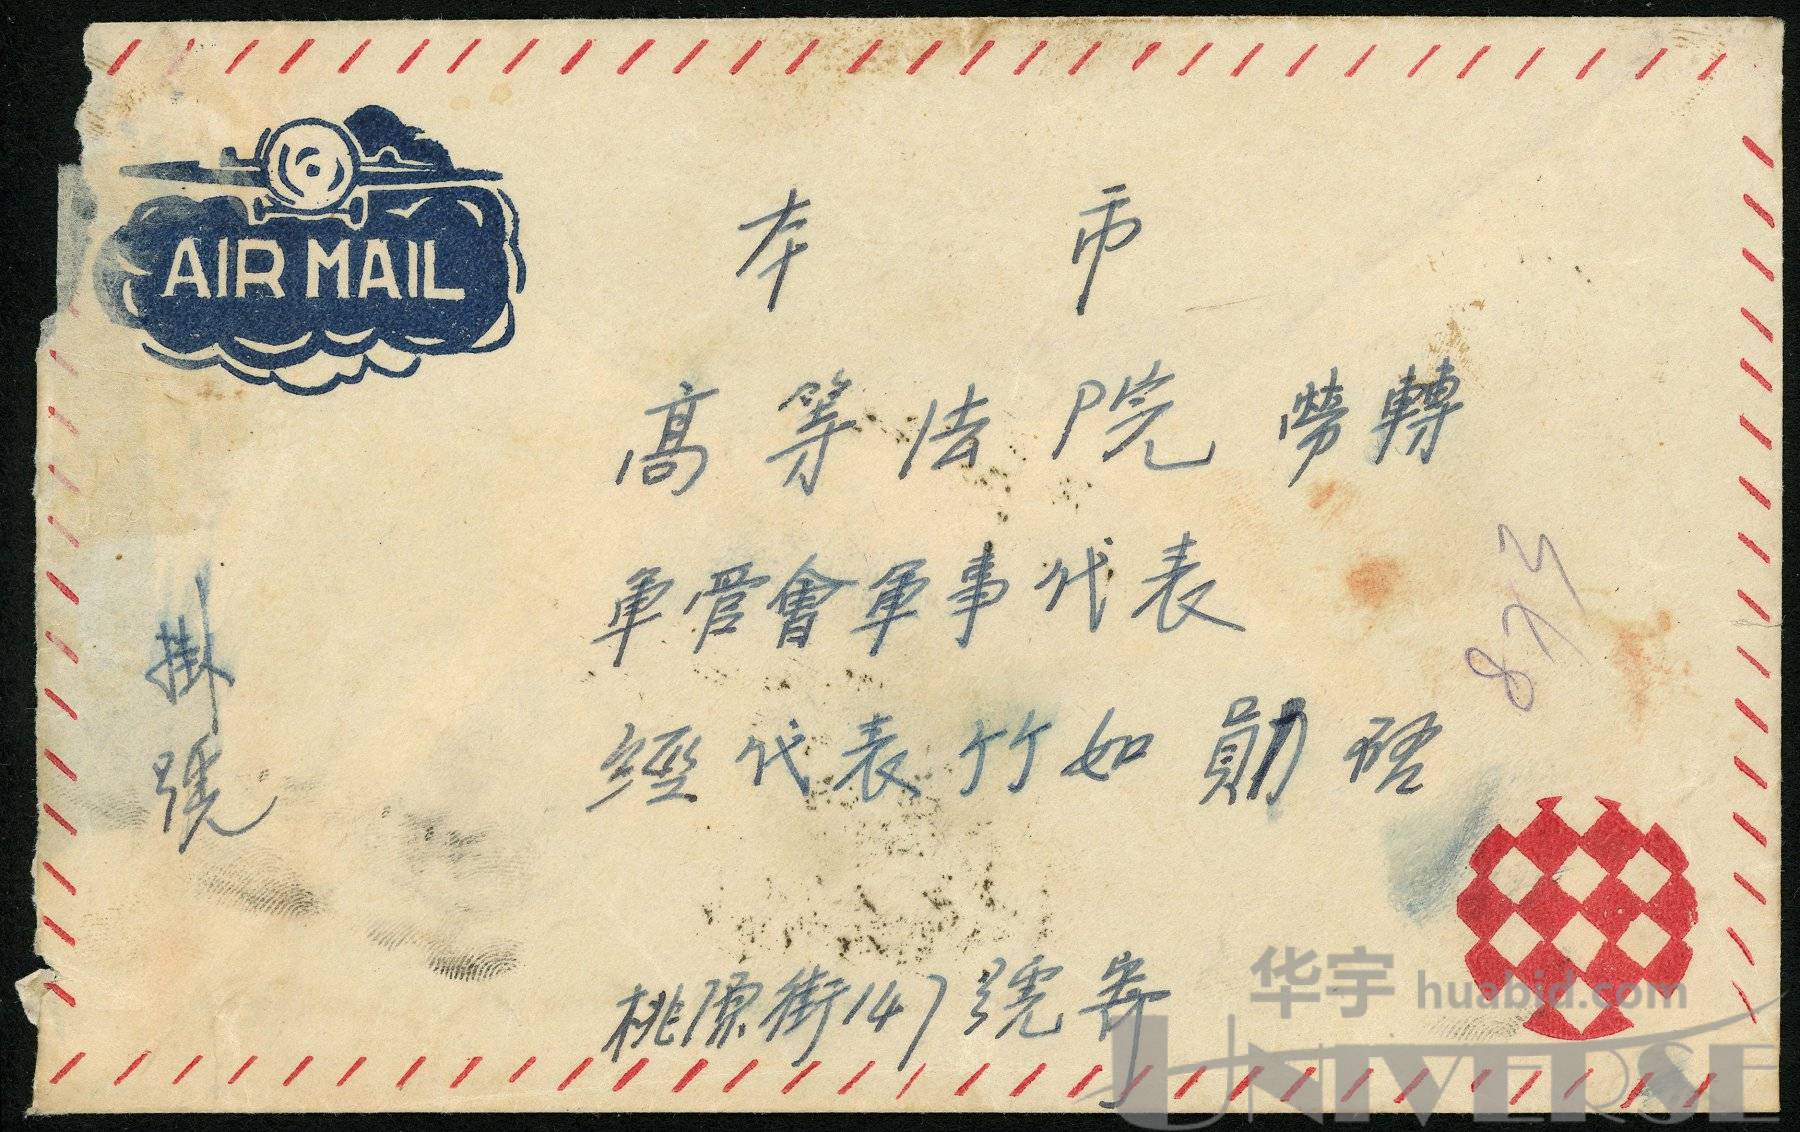 AIR MAIL
本 市
高等法院 勞轉
軍管會軍事代表
經代表竹如勛 啓
掛號
桃源街147號寄
华宇 huabid.com
UNIVERSE